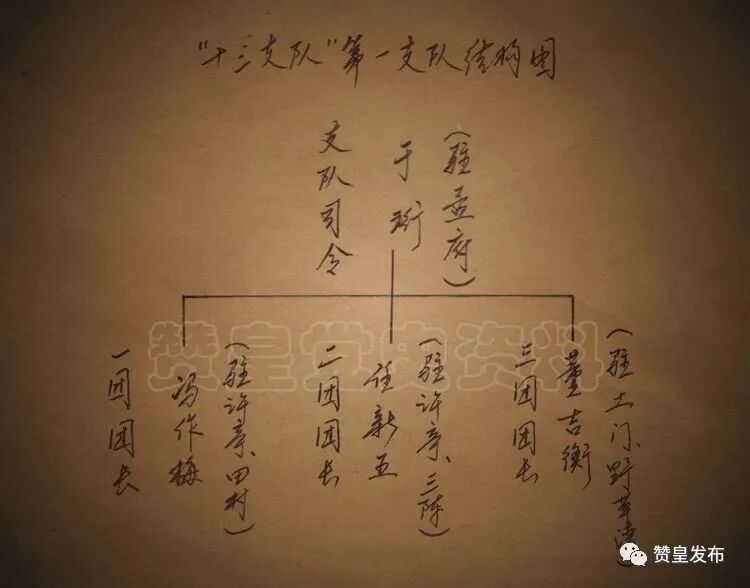 “十三支队”第一支队结构图
支队司令
于珩
（驻孟府）
一团团长
冯作梅
（驻许亭、田村）
二团团长
任新五
（驻许亭、三陈）
三团团长
董吉衡
（驻土门、野草湾）
赞皇党史资料
赞皇发布